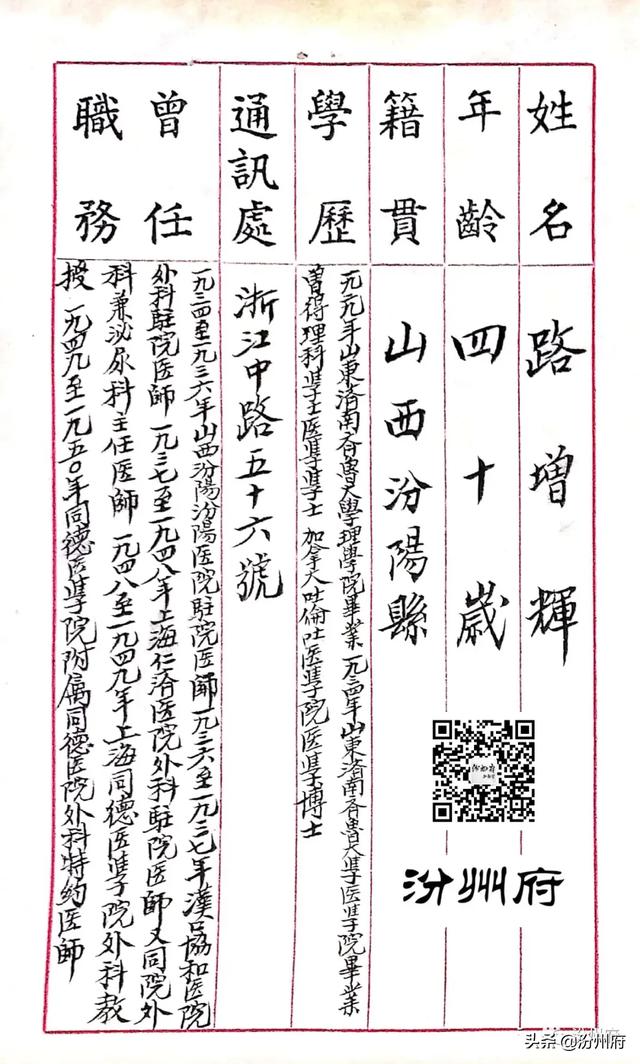 姓名
路增輝
年齡
四十歲
籍貫
山西汾陽縣
學歷
年山東濟南齊魯大學理學院畢業一九三四年山東濟南齊魯大學医學院畢業
曾得理科學士医學學士 加拿大吐倫吐医學院医學博士
通訊處
浙江中路五十六號
曾任
職務
一九三四至一九三六年山西汾陽汾陽医院駐院医師一九三六至一九三七年漢口協和医院
外科駐院医師一九三七至一九四八年上海仁濟医院外科駐院医師又同院外
科兼泌尿科主任医師一九四八至一九四九年上海同德医學院外科教
授一九四九至一九五〇年同德医學院附属同德医院外科特約医師
汾州府
头条 @汾州府